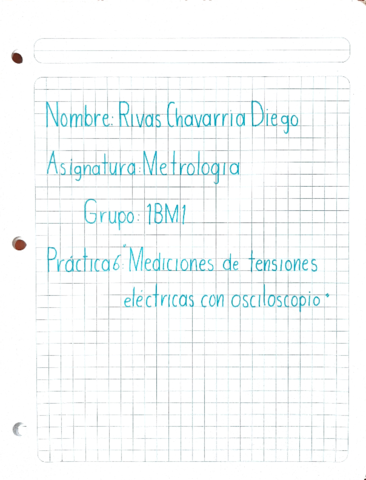 Nombre: Rivas Chavarria Diego
Asignatura: Metrología
Grupo: 1BM1
Práctica 6: "Mediciones de tensiones
eléctricas con osciloscopio"